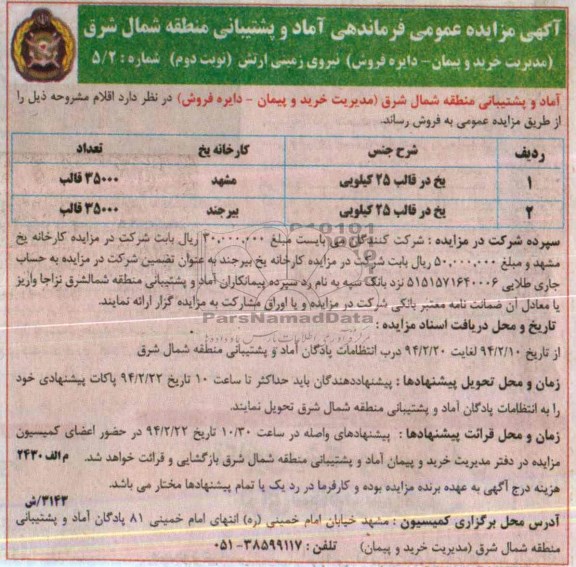 آگهی مزایده عمومی فرماندهی آماد و پشتیبانی منطقه شمال شرق
(مدیریت خرید و پیمان- دایره فروش) نیروی زمینی ارتش (نوبت دوم) شماره : ۵/۲
آماد و پشتیبانی منطقه شمال شرق (مدیریت خرید و پیمان - دایره فروش) در نظر دارد اقلام مشروحه ذیل را
از طریق مزایده عمومی به فروش رساند.
ردیف شرح جنس کارخانه یخ تعداد
۱ یخ در قالب ۲۵ کیلویی مشهد ۳۵۰۰۰ قالب
۲ یخ در قالب ۲۵ کیلویی بیرجند ۳۵۰۰۰ قالب
سپرده شرکت در مزایده : شرکت کنندگان می بایست مبلغ ۳۰,۰۰۰,۰۰۰ ریال بابت شرکت در مزایده کارخانه یخ
مشهد و مبلغ ۵۰,۰۰۰,۰۰۰ ریال بابت شرکت در مزایده کارخانه یخ بیرجند به عنوان تضمین شرکت در مزایده به حساب
جاری طلایی ۵۱۵۱۵۷۱۶۴۰۰۰۶ نزد بانک سپه به نام رد سپرده پیمانکاران آماد و پشتیبانی منطقه شمالشرق نزاجا واریز
یا معادل آن ضمانت نامه معتبر بانکی شرکت در مزایده و یا اوراق مشارکت به مزایده گزار ارائه نمایند.
ParsNamadData
تاریخ و محل دریافت اسناد مزایده :
از تاریخ ۹۴/۲/۱۰ لغایت ۹۴/۲/۲۰ درب انتظامات پادگان آماد و پشتیبانی منطقه شمال شرق
زمان و محل تحویل پیشنهادها : پیشنهاددهندگان باید حداکثر تا ساعت ۱۰ تاریخ ۹۴/۲/۲۲ پاکات پیشنهادی خود
را به انتظامات پادگان آماد و پشتیبانی منطقه شمال شرق تحویل نمایند.
زمان و محل قرائت پیشنهادها : پیشنهادهای واصله در ساعت ۱۰/۳۰ تاریخ ۹۴/۲/۲۲ در حضور اعضای کمیسیون
مزایده در دفتر مدیریت خرید و پیمان آماد و پشتیبانی منطقه شمال شرق بازگشایی و قرائت خواهد شد. م الف ۲۴۳۰
هزینه درج آگهی به عهده برنده مزایده بوده و کارفرما در رد یک یا تمام پیشنهادها مختار می باشد.
۳۱۴۳/ش
آدرس محل برگزاری کمیسیون : مشهد خیابان امام خمینی (ره) انتهای امام خمینی ۸۱ پادگان آماد و پشتیبانی
منطقه شمال شرق (مدیریت خرید و پیمان) تلفن : ۳۸۵۹۹۱۱۷-۰۵۱